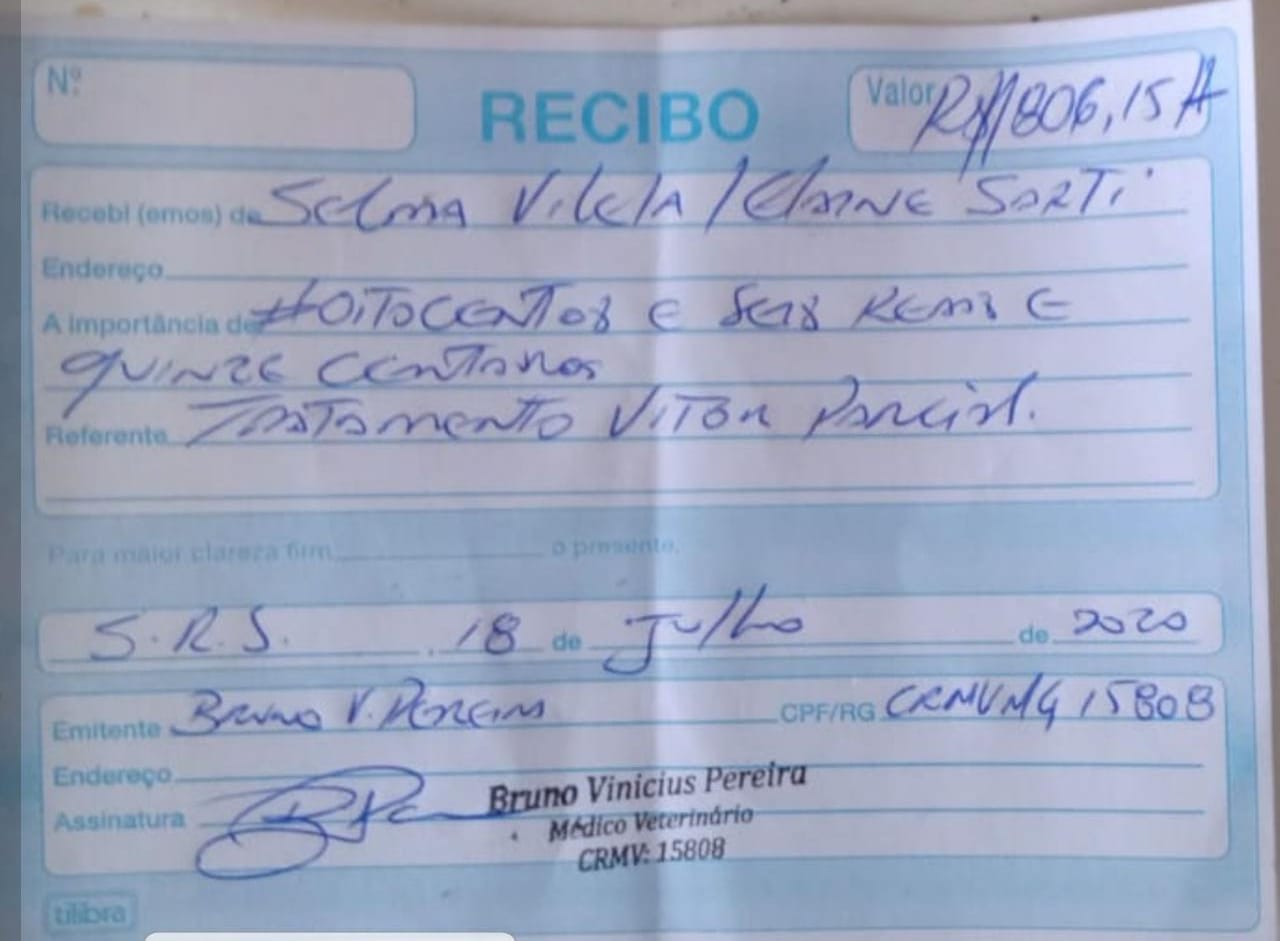 Nº
RECIBO
Valor R$ 806,15 #
Recebi (emos) de Selma Vilela / Elaine Sarti
Endereço
A importância de # Oitocentos e seis reais e
quinze centavos
Referente Tratamento Vitor Parcial.
Para maior clareza firm o presente.
S.R.S. , 18 de Julho de 2020
Emitente Bruno V. Pereira CPF/RG CRMVMG 15808
Endereço
Assinatura
Bruno Vinicius Pereira
Médico Veterinário
CRMV: 15808
tilibra